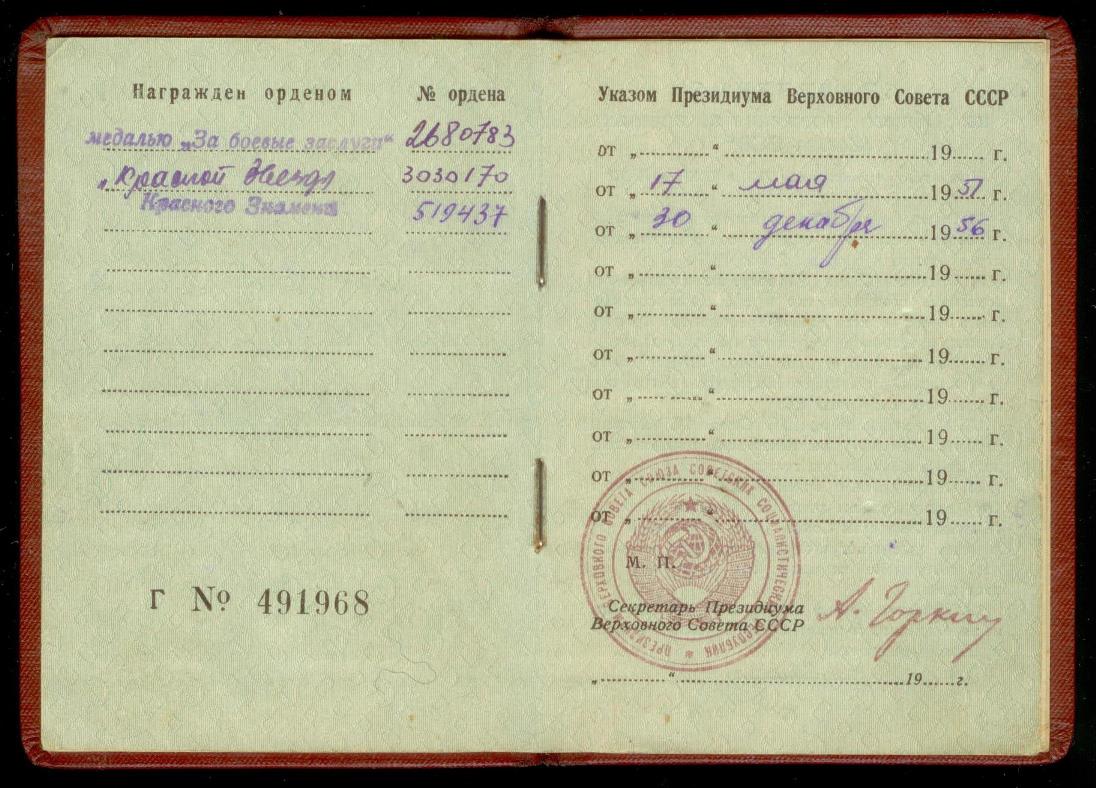 Награжден орденом № ордена
медалью „За боевые заслуги“ 2680783
„Красной Звезды 3030170
Красного Знамени 519437
Г № 491968
Указом Президиума Верховного Совета СССР
от „ “ 19 г.
от „ 17 “ мая 1951 г.
от „ 30 “ декабря 1956 г.
от „ “ 19 г.
от „ “ 19 г.
от „ “ 19 г.
от „ “ 19 г.
от „ “ 19 г.
от „ “ 19 г.
от „ “ 19 г.
ПРЕЗИДИУМ ВЕРХОВНОГО СОВЕТА СОЮЗА СОВЕТСКИХ СОЦИАЛИСТИЧЕСКИХ РЕСПУБЛИК
М. П.
Секретарь Президиума
Верховного Совета СССР
А. Горкин
„ “ 19 г.